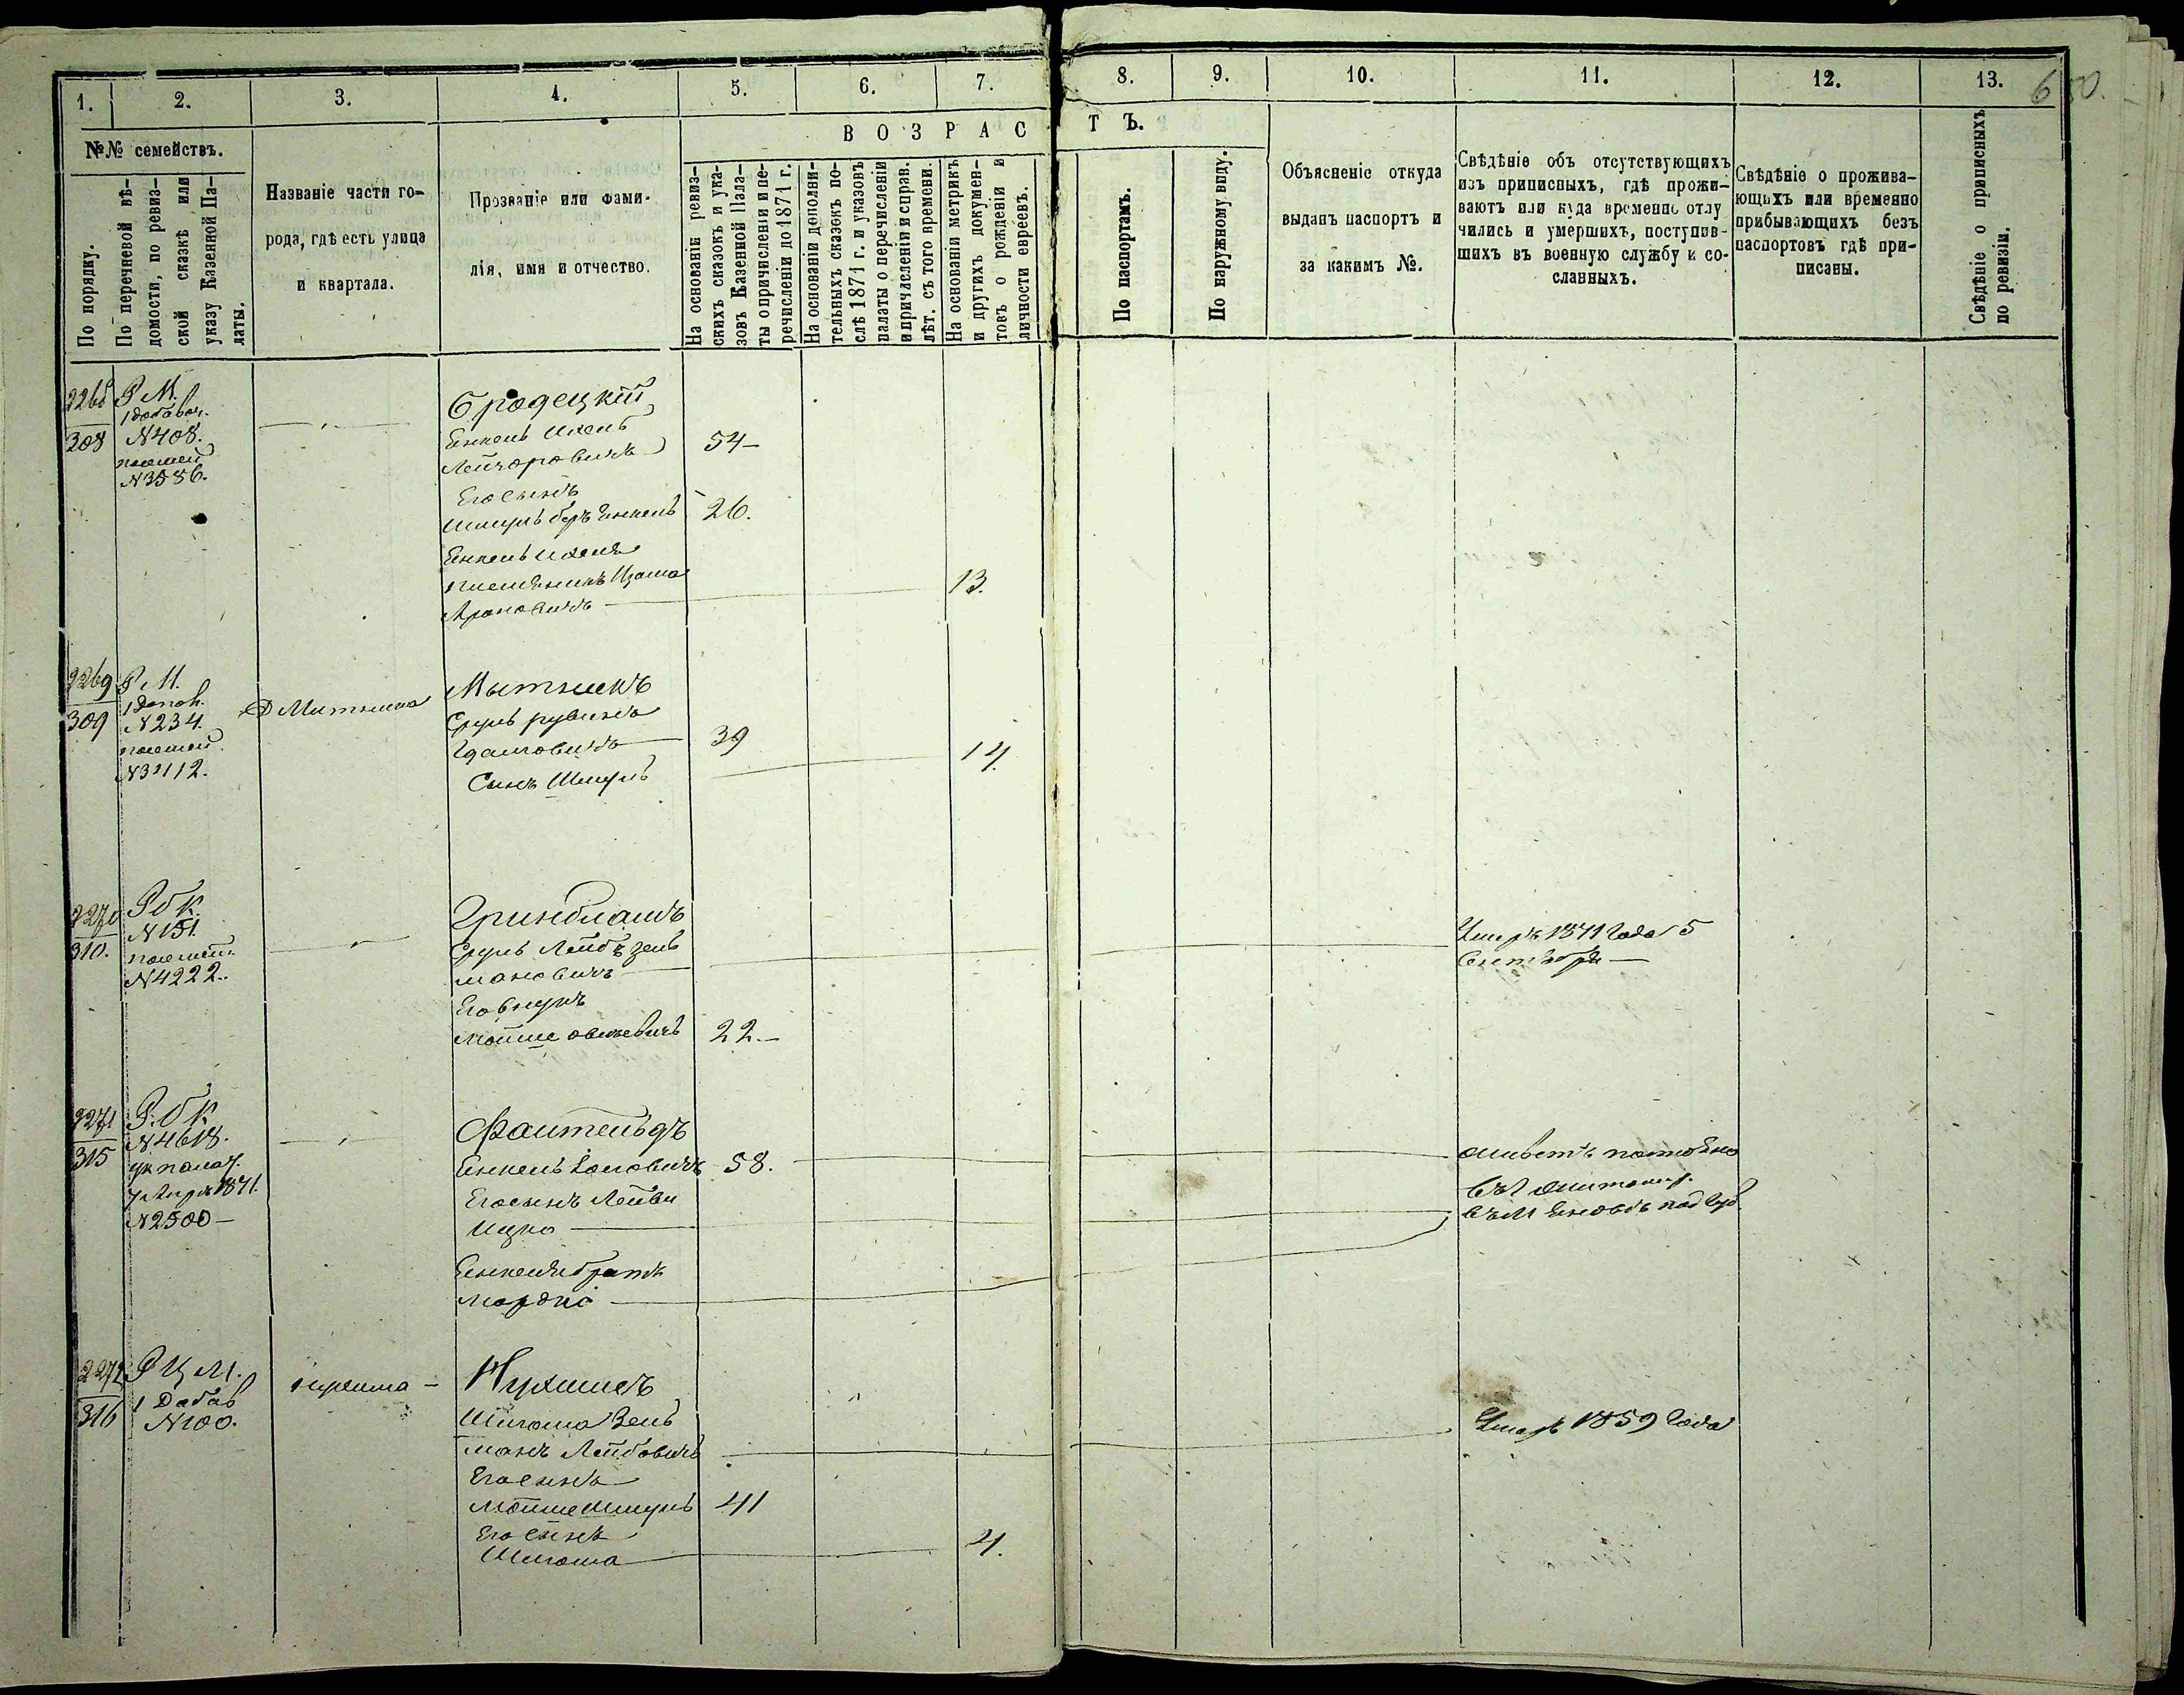 1. 2. 3. 4. 5. 6. 7. 8. 9. 10. 11. 12. 13.
650.
№№ семействъ.
По порядку.
По перечневой вѣ-
домости, по ревиз-
ской сказкѣ или
указу Казенной Па-
латы.
Названіе части го-
рода, гдѣ есть улица
и квартала.
Прозваніе или фами-
лія, имя и отчество.
ВОЗРАСТЪ.
На основаніи ревиз-
скихъ сказокъ и ука-
зовъ Казенной Пала-
ты о причисленіи и пе-
речисленіи до 1871 г.
На основаніи дополни-
тельныхъ сказокъ по-
слѣ 1871 г. и указовъ
палаты о перечисленіи
и причисленіи и справ.
лѣт. съ того времени.
На основаніи метрикъ
и другихъ докумен-
товъ о рожденіи и
личности евреевъ.
По паспортамъ.
По наружному виду.
Объясненіе откуда
выданъ паспортъ и
за какимъ №.
Свѣдѣніе объ отсутствующихъ
изъ приписныхъ, гдѣ прожи-
ваютъ или куда временно отлу
чились и умершихъ, поступив-
шихъ въ военную службу и со-
сланныхъ.
Свѣдѣніе о прожива-
ющихъ или временно
прибывающихъ безъ
паспортовъ гдѣ при-
писаны.
Свѣдѣніе о приписныхъ
по ревизіи.
2268
308
Р М.
1 добавоч.
N 408.
N 3586.
Бродецкій
Янкель Ихель
54-
Его сынъ
Шмуль беръ Янкель 26.
Янкель Ихеля
племянникъ
Ароновичъ 13.
2269
309
Р М.
N 234
N 3112.
Мытникъ
Сруль рувинъ
39
Сынъ Шмуль 14.
2270
310.
Р б К.
N 151.
N 4222.
Гринблатъ
Сруль Лейбъ Зель
мановичъ
Его внукъ
Мойше 22.-
Умеръ 1871 года 5
Сентября
2271
315
Р. б К.
N 4618.
ук палат.
1871.
N 2500-
Файтельдъ
Янкель 58.
Его сынъ Лейви
Ицко
Янкеля братъ
Мордко
живетъ
2272
316
Р Ц М.
1 Добав
N 100.
Шлема Зель
манъ Лейбовичъ
Умеръ 1859 года
Его сынъ
Мойше Шмуль 41
Его сынъ
Шлема 4.